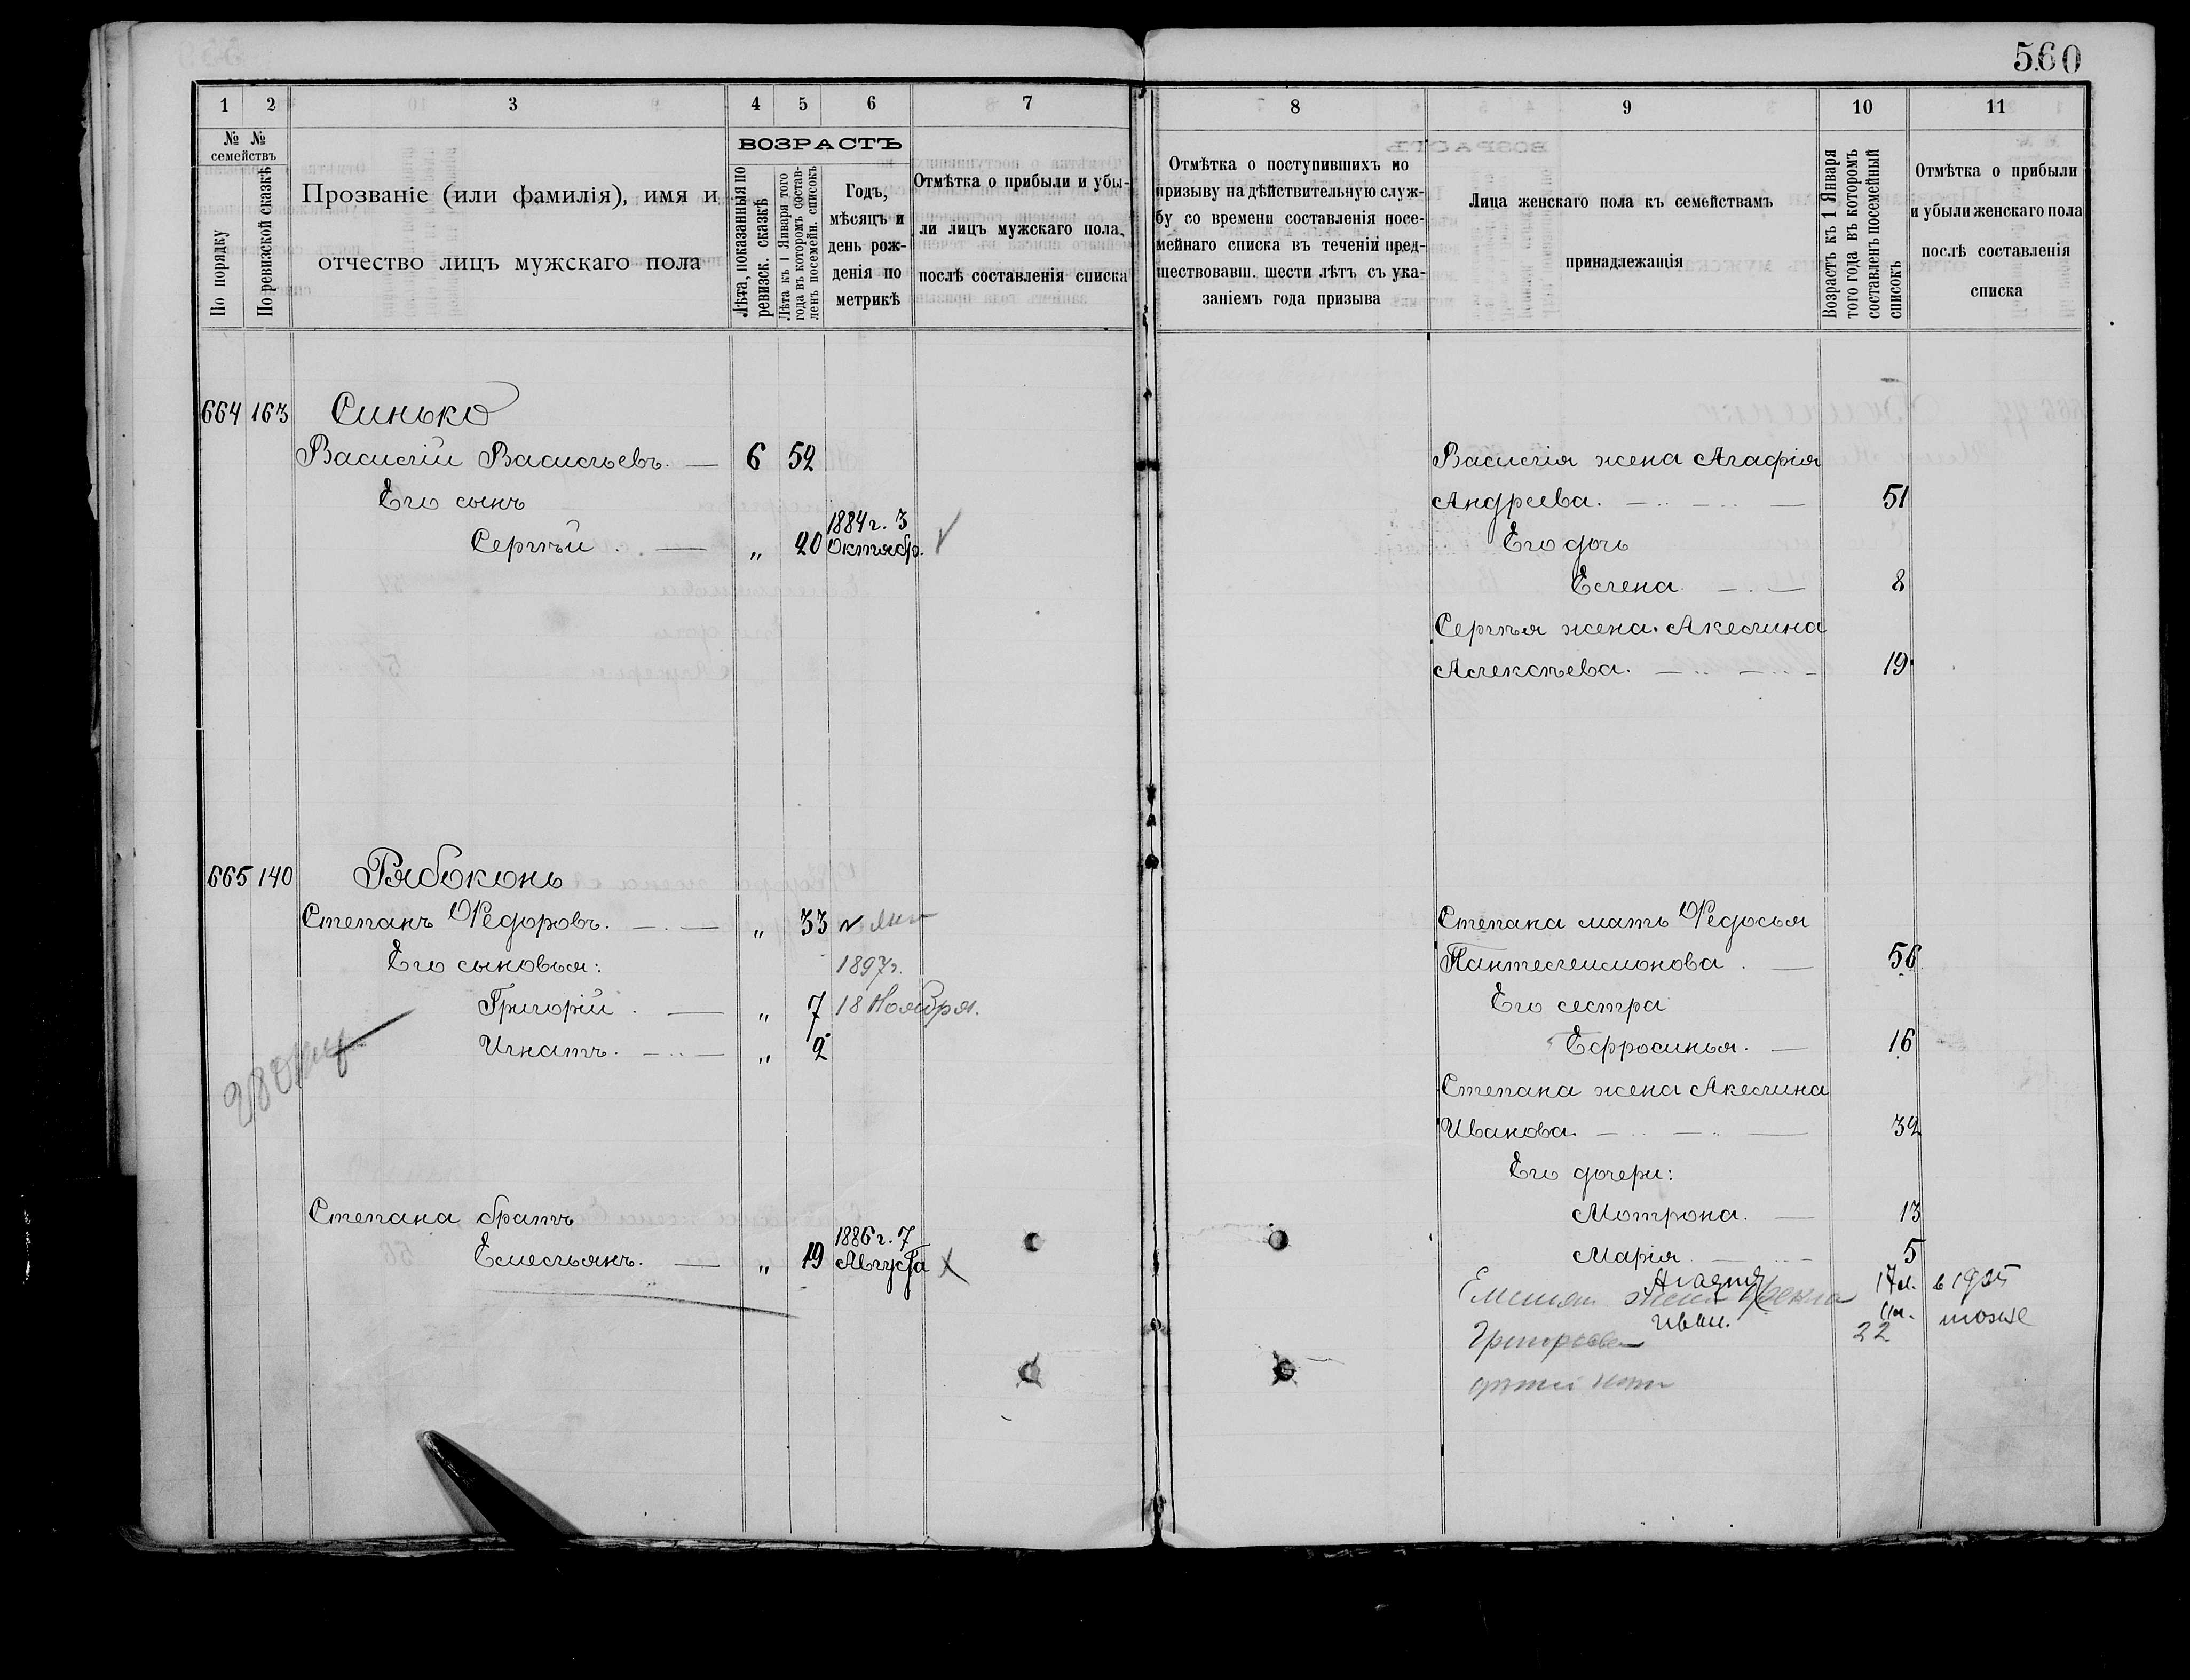 560
1 2 3 4 5 6 7
№ № семействъ
По порядку
По ревизской сказкѣ
Прозваніе (или фамилія), имя и
отчество лицъ мужскаго пола
ВОЗРАСТЪ
Лѣта, показанныя по
ревизск. сказкѣ
Лѣта къ 1 Января того
года въ которомъ состав-
ленъ посемейн. списокъ
Годъ,
мѣсяцъ и
день рож-
денія по
метрикѣ
Отмѣтка о прибыли и убы-
ли лицъ мужскаго пола,
послѣ составленія списка
664 163 Синько
Василій Васильевъ. 6 52
Его сынъ
1884 г. 3
Сергѣй „ 20 Октябр.
665 140 Рябоконь
Степанъ Ѳедоровъ. „ 33
Его сыновья: 1897 г.
Григорій „ 7 18 Ноября.
Игнатъ. „ 2
Степана братъ
1886 г. 7
Емельянъ. „ 19 Августа
8 9 10 11
Отмѣтка о поступившихъ по
призыву на дѣйствительную служ-
бу со времени составленія посе-
мейнаго списка въ теченіи пред-
шествовавш. шести лѣтъ съ ука-
заніемъ года призыва
Лица женскаго пола къ семействамъ
принадлежащія
Возрастъ къ 1 Января
того года въ которомъ
составленъ посемейный
списокъ
Отмѣтка о прибыли
и убыли женскаго пола
послѣ составленія
списка
Василія жена Агафія
Андреева. 51
Его дочь
Елена. 8
Сергѣя жена Акелина
Алексѣева. 19
Степана мать Ѳедосья
Пантелеимонова. 56
Его сестра
Ефросинья. 16
Степана жена Акелина
Иванова. 32
Его дочери:
Мотрона. 13
Марія. 5
жена
Иван. тоже
22